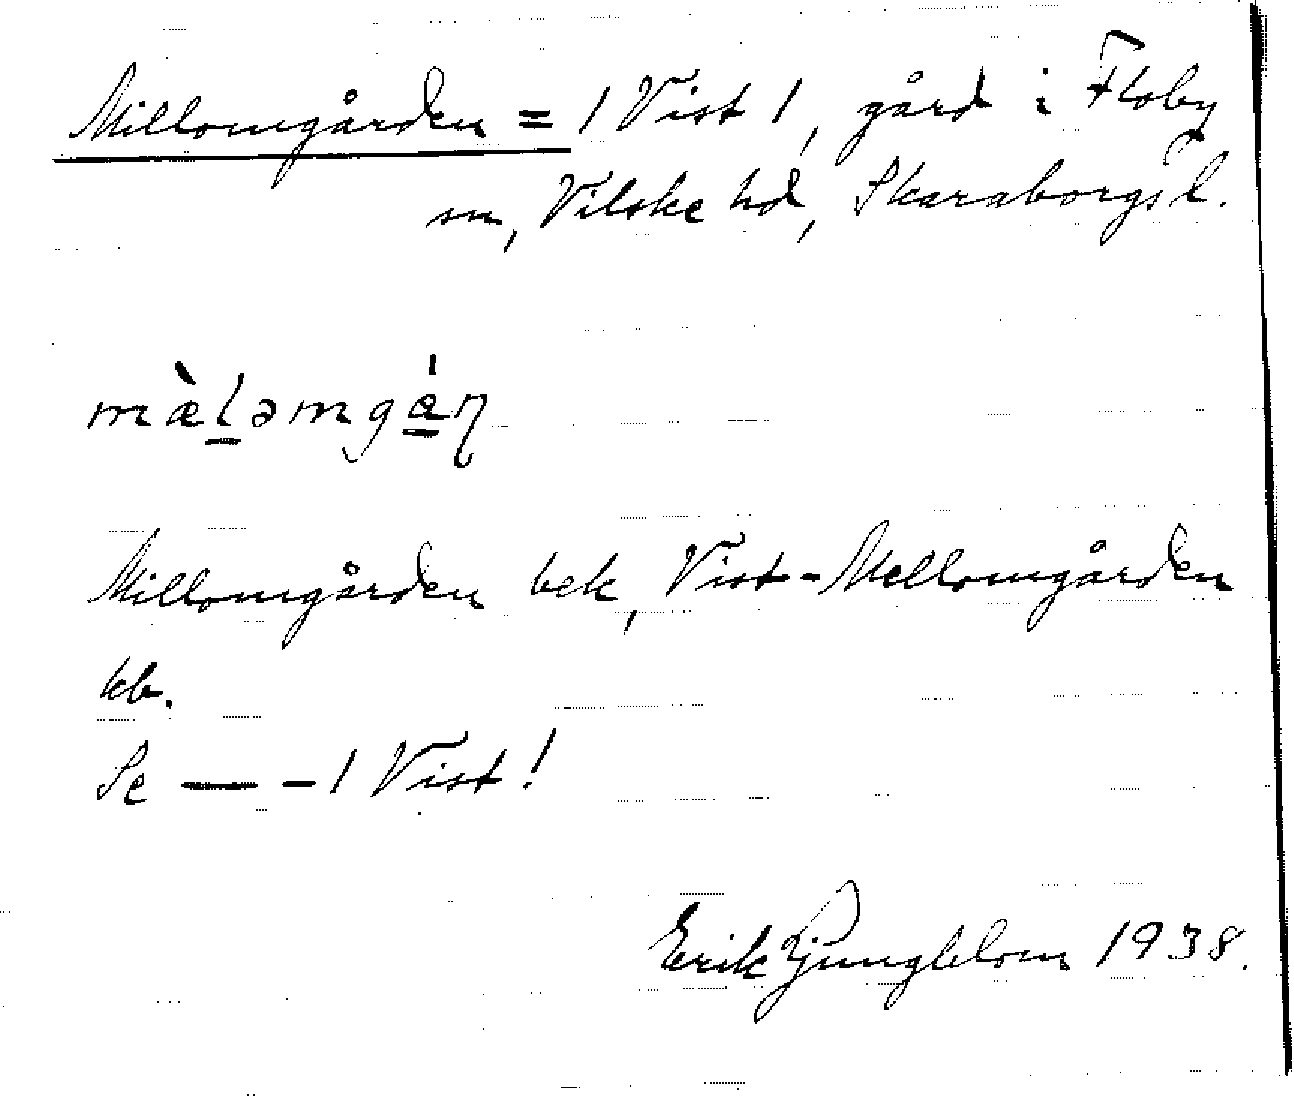 Millomgården = 1 Vist 1, gård i Floby
sn, Vilske hd, Skaraborgs l.
mæ̀l̠əmgá̠ɳ
Millomgården bek, Vist-Mellomgården
kb.
Se — – 1 Vist!
Erik Ljungblom 1938.